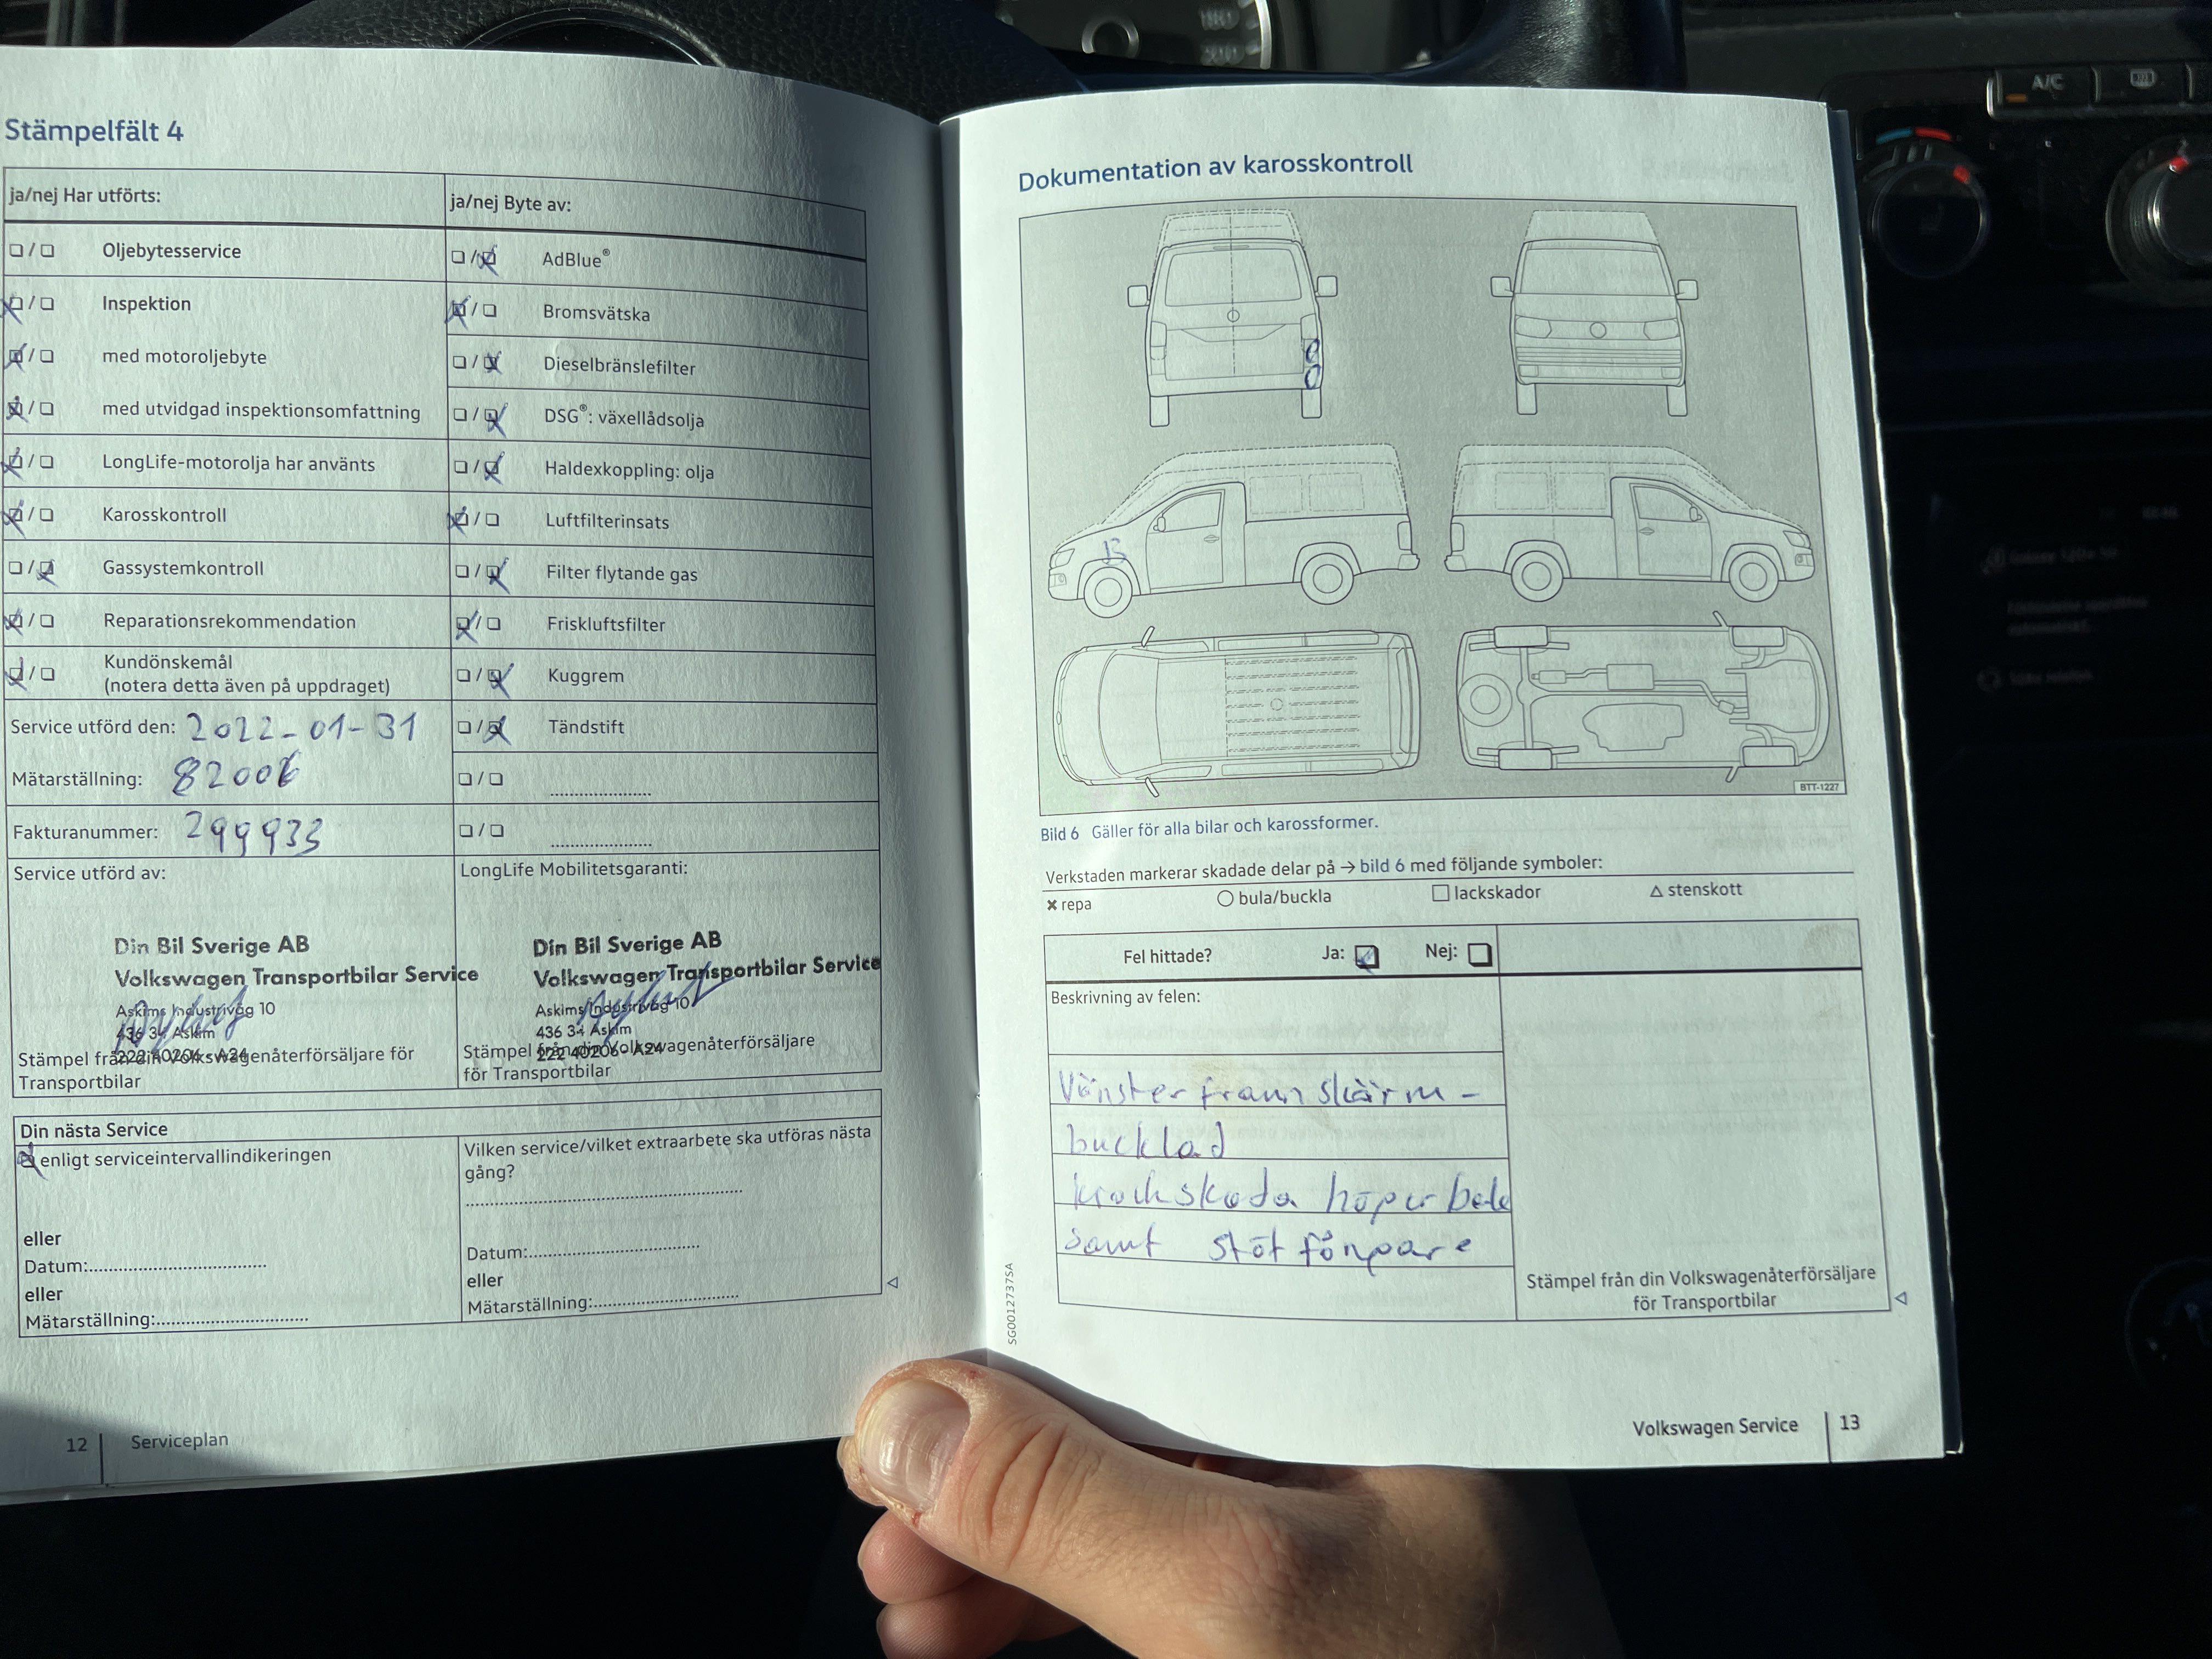 Stämpelfält 4
ja/nej Har utförts:
Oljebytesservice
Inspektion
med motoroljebyte
med utvidgad inspektionsomfattning
LongLife-motorolja har använts
Karosskontroll
Gassystemkontroll
Reparationsrekommendation
Kundönskemål
(notera detta även på uppdraget)
Service utförd den: 2022-01-31
Mätarställning: 82006
Fakturanummer: 299933
ja/nej Byte av:
AdBlue®
Bromsvätska
Dieselbränslefilter
DSG®: växellådsolja
Haldexkoppling: olja
Luftfilterinsats
Filter flytande gas
Friskluftsfilter
Kuggrem
Tändstift
Service utförd av:
Din Bil Sverige AB
Volkswagen Transportbilar Service
Askims Industriväg 10
436 34 Askim
222 40206 - A24
Stämpel från din Volkswagenåterförsäljare för
Transportbilar
LongLife Mobilitetsgaranti:
Din Bil Sverige AB
Volkswagen Transportbilar Service
Askims Industriväg 10
436 34 Askim
222 40206 - A24
Stämpel från din Volkswagenåterförsäljare
för Transportbilar
Din nästa Service
enligt serviceintervallindikeringen
eller
Datum:
eller
Mätarställning:
Vilken service/vilket extraarbete ska utföras nästa
gång?
Datum:
eller
Mätarställning:
12 Serviceplan
Dokumentation av karosskontroll
BTT-1227
Bild 6 Gäller för alla bilar och karossformer.
Verkstaden markerar skadade delar på → bild 6 med följande symboler:
✖ repa ○ bula/buckla □ lackskador △ stenskott
Fel hittade? Ja: Nej:
Beskrivning av felen:
Vänster fram skärm -
bucklad
krockskada
samt
Stämpel från din Volkswagenåterförsäljare
för Transportbilar
SG0012737SA
Volkswagen Service 13
A/C